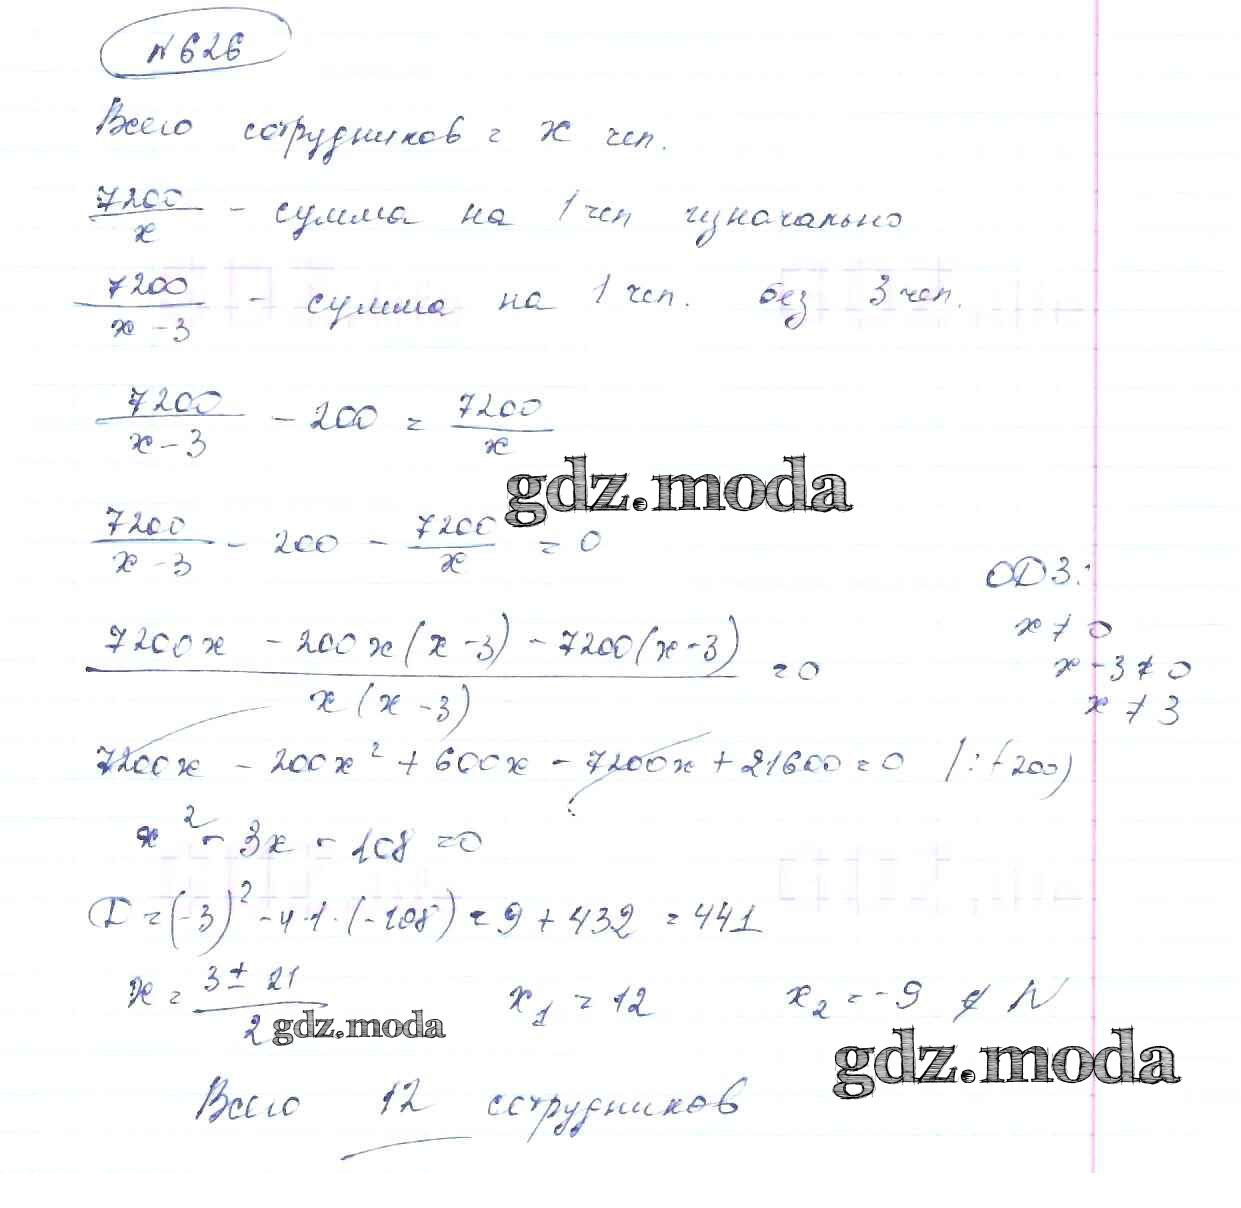 №626
Всего сотрудников = x чел.
7200/x - сумма на 1 чел изначально
7200/(x-3) - сумма на 1 чел. без 3 чел.
7200/(x-3) - 200 = 7200/x
gdz.moda
7200/(x-3) - 200 - 7200/x = 0
ОДЗ:
x ≠ 0
x-3 ≠ 0
x ≠ 3
(7200x - 200x(x-3) - 7200(x-3))/(x(x-3)) = 0
7200x - 200x² + 600x - 7200x + 21600 = 0 |:(-200)
x² - 3x - 108 = 0
D = (-3)² - 4·1·(-108) = 9 + 432 = 441
x = (3 ± 21)/2 x₁ = 12 x₂ = -9 ∉ N
gdz.moda
gdz.moda
Всего 12 сотрудников